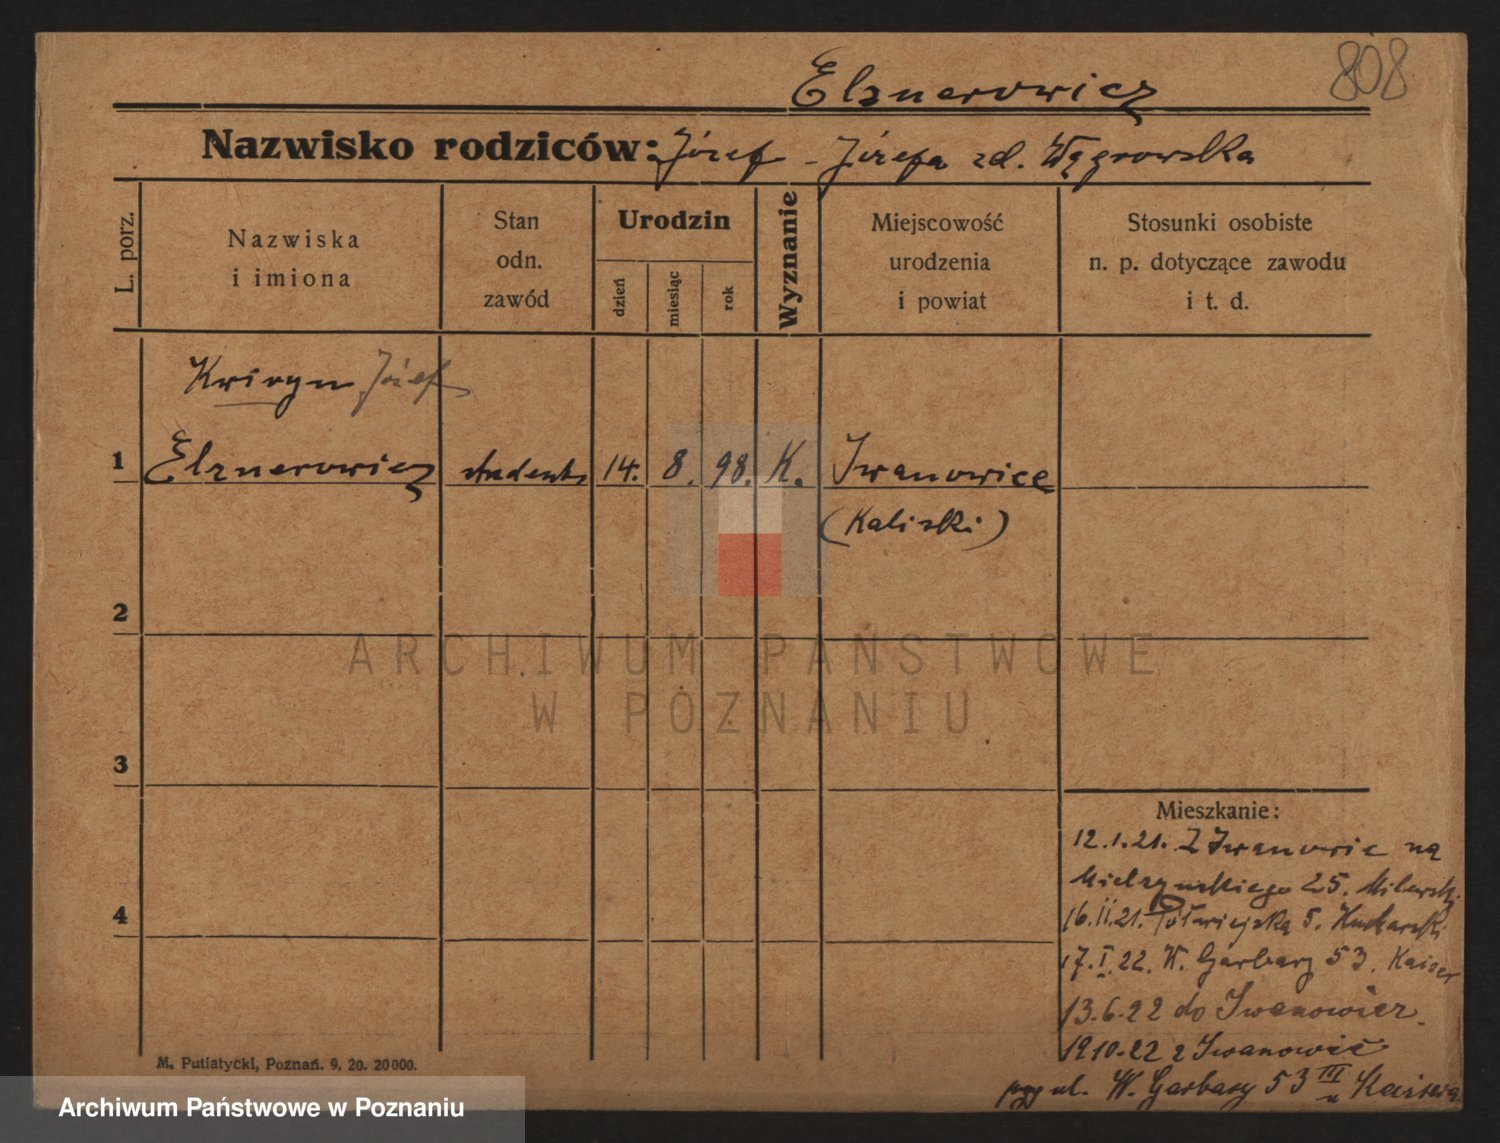 808
Elsnerowicz
Nazwisko rodziców: Józef - Józefa zd. Węgrowska
L. porz.
Nazwiska
i imiona
Stan
odn.
zawód
Urodzin
dzień
miesiąc
rok
Wyznanie
Miejscowość
urodzenia
i powiat
Stosunki osobiste
n. p. dotyczące zawodu
i t. d.
Kwiryn Józef
1 Elsnerowicz student 14. 8. 98. K. Iwanowice
(Kaliski)
2
3
4
ARCHIWUM PAŃSTWOWE
W POZNANIU
Mieszkanie:
12.1.21. Z Iwanowic na
Mielżyńskiego 25. Milewski
16.II.21. Półwiejska 5. Kucharski
17.I.22. W. Garbary 53. Kaiser
13.6.22 do Iwanowicz
19 10.22 z Iwanowic
przy ul. W. Garbary 53 III u Kaisera
M. Putiatycki, Poznań. 9. 20. 20000.
Archiwum Państwowe w Poznaniu